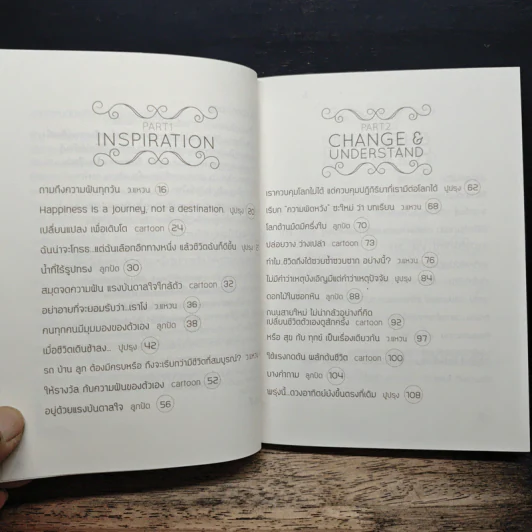 PART1
INSPIRATION
ถามถึงความฝันทุกวัน ว.แหวน 16
Happiness is a journey, not a destination. ปุปรุง 20
เปลี่ยนแปลง เพื่อเติบโต cartoon 24
ฉันน่าจะโกรธ...แต่ฉันเลือกอีกทางหนึ่ง แล้วชีวิตฉันก็ดีขึ้น ปุปรุง
น้ำที่ไร้รูปทรง ลูกปัด 30
สมุดจดความฝัน แรงบันดาลใจใกล้ตัว cartoon 32
อย่าอายที่จะยอมรับว่า...เราโง่ ว.แหวน 36
คนทุกคนมีมุมมองของตัวเอง ลูกปัด 38
เมื่อชีวิตเดินช้าลง... ปุปรุง 42
รถ บ้าน ลูก ต้องมีครบหรือ ถึงจะเรียกว่ามีชีวิตที่สมบูรณ์?
ให้รางวัล กับความฝันของตัวเอง cartoon 52
อยู่ด้วยแรงบันดาลใจ ลูกปัด 56
PART2
CHANGE &
UNDERSTAND
เราควบคุมโลกไม่ได้ แต่ควบคุมปฏิกิริยาที่เรามีต่อโลกได้ ปุปรุง 62
เรียก "ความผิดหวัง" ซะใหม่ ว่า บทเรียน ว.แหวน 68
โลกด้านมืดมีครึ่งใบ ลูกปัด 70
ปล่อยวาง ว่างเปล่า cartoon 73
ทำไม ชีวิตถึงได้ซวยซ้ำซวยซาก อย่างนี้? ว.แหวน 76
ไม่มีคำว่าเหตุบังเอิญมีแต่คำว่าเหตุปัจจัย ปุปรุง 84
ดอกไม้ในซอกหิน ลูกปัด 88
ถนนสายใหม่ ไม่น่ากลัวอย่างที่คิด
เปลี่ยนชีวิตตัวเองดูสักครั้ง cartoon 92
หรือ สุข กับ ทุกข์ เป็นเรื่องเดียวกัน ว.แหวน 97
ใช้แรงกดดัน ผลักดันชีวิต cartoon 100
บางคำถาม ลูกปัด 104
พรุ่งนี้...ดวงอาทิตย์ยังขึ้นตรงที่เดิม ปุปรุง 108